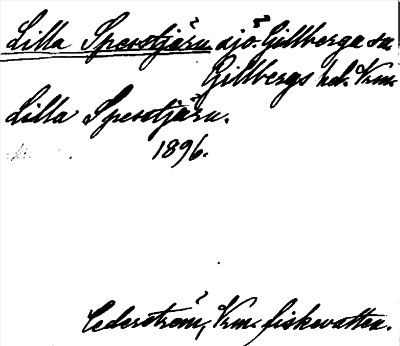 Lilla Sperstjärn sjö. Gillberga sn.
Gillbergs hd. Vrm.
Lilla Sperstjärn.
1896.
Cederström, Vrm. fiskevatten.